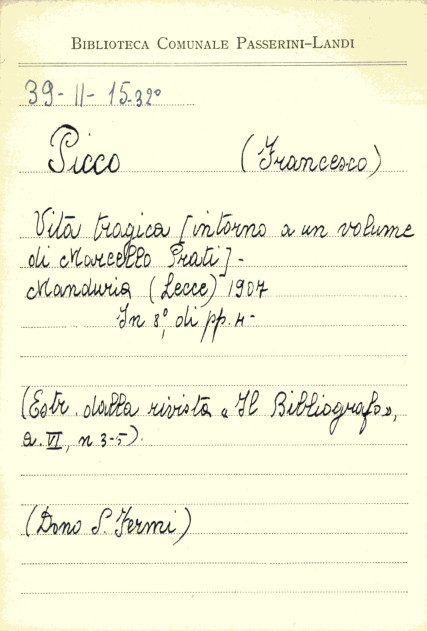 BIBLIOTECA COMUNALE PASSERINI-LANDI
39- II- 15-32°
Picco (Francesco)
Vita tragica [intorno a un volume
di Marcello Prati] -
Manduria (Lecce) 1907
In 8°, di pp. 4-
(Estr. dalla rivista « Il Bibliografo »,
a. VI, n 3-5).
(Dono S. Fermi)